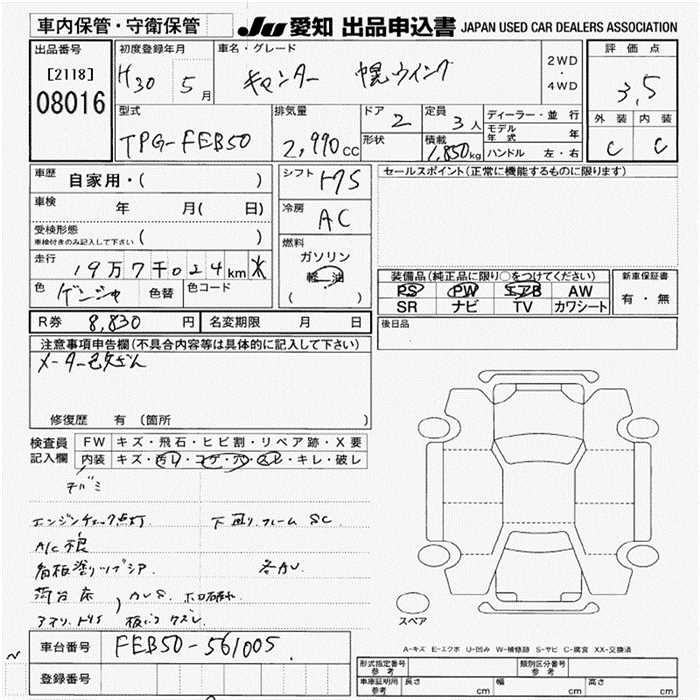 車内保管・守衛保管
JU 愛知 出品申込書 JAPAN USED CAR DEALERS ASSOCIATION
出品番号
[2118]
08016
初度登録年月
H30 5月
車名・グレード
キャンター 幌ウイング
2WD
・
4WD
評価点
3.5
外装 内装
C C
型式
TPG-FEB50
排気量
2,990cc
ドア 2
形状
定員 3人
積載 1,850kg
ディーラー・並行
モデル年式 年
ハンドル 左・右
車歴 自家用・( )
車検 年 月( 日)
受検形態
車検付きのみ記入して下さい ( )
走行 19万7千024km
色 色替 色コード
シフト F7S
冷房 AC
燃料
ガソリン
軽油
( )
セールスポイント(正常に機能するものに限ります)
装備品(純正品に限り○をつけてください)
PS PW エアB AW
SR ナビ TV カワシート
新車保証書
有・無
R券 8,830円 名変期限 月 日
後日品
注意事項申告欄(不具合内容等は具体的に記入して下さい)
メーター
修復歴 有 (箇所 )
検査員記入欄
FW キズ・飛石・ヒビ割・リペア跡・X要
内装 キズ・汚れ・コゲ・穴・スレ・キレ・破レ
エンジンチェック点灯 下回り.フレーム SC
A/C不良
スペア
A-キズ E-エクボ U-凹み W-補修跡 S-サビ C-腐食 XX-交換済
車台番号 FEB50-561005
登録番号
形式指定番号 参考
類別区分番号 参考
車庫証明用 参考 長さ cm 幅 cm 高さ cm